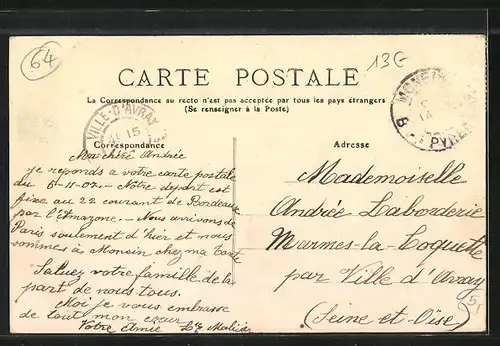 64
13G
CARTE POSTALE
La Correspondance au recto n'est pas acceptée par tous les pays étrangers
(Se renseigner à la Poste)
VILLE-D'AVRAY
15
Correspondance
Adresse
Ma chère Andrée
je réponds a votre carte postale
du 6-11-07. - Notre départ est
fixé au 22 courant de Bordeaux
par l'Amazone. - Nous arrivons de
Paris seulement d'hier et nous
sommes à Monein chez ma tante
Saluez votre famille de la
part de nous tous.
Moi je vous embrasse
de tout mon cœur
Votre Amie
Mademoiselle
Andrée Laborderie
Marnes-la-Coquette
par Ville d'Avray
(Seine et Oise)